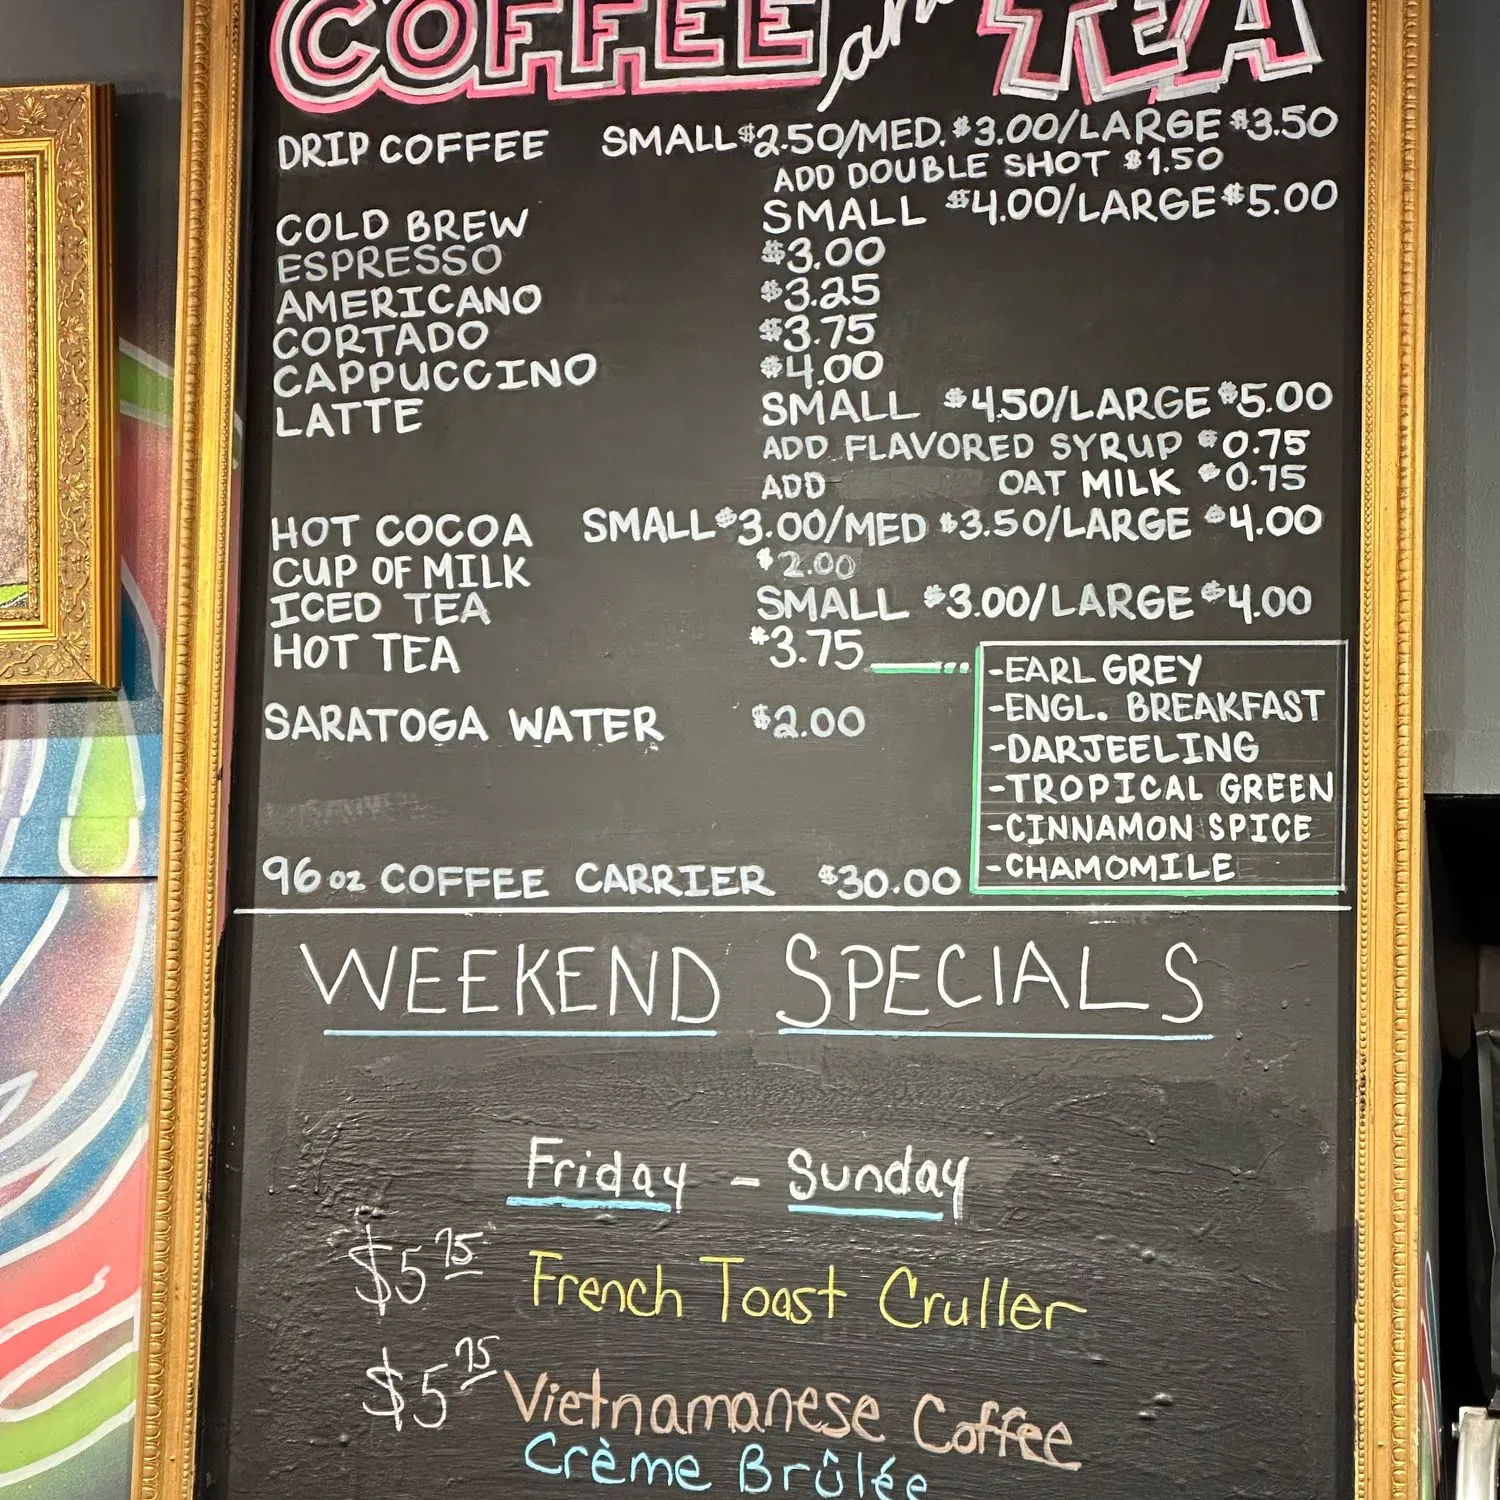 COFFEE and TEA
DRIP COFFEE SMALL $2.50/MED. $3.00/LARGE $3.50
ADD DOUBLE SHOT $1.50
COLD BREW SMALL $4.00/LARGE $5.00
ESPRESSO $3.00
AMERICANO $3.25
CORTADO $3.75
CAPPUCCINO $4.00
LATTE SMALL $4.50/LARGE $5.00
ADD FLAVORED SYRUP $0.75
ADD OAT MILK $0.75
HOT COCOA SMALL $3.00/MED $3.50/LARGE $4.00
CUP OF MILK $2.00
ICED TEA SMALL $3.00/LARGE $4.00
HOT TEA $3.75
-EARL GREY
-ENGL. BREAKFAST
-DARJEELING
-TROPICAL GREEN
-CINNAMON SPICE
-CHAMOMILE
SARATOGA WATER $2.00
96 oz COFFEE CARRIER $30.00
WEEKEND SPECIALS
Friday - Sunday
$5 75 French Toast Cruller
$5 75 Vietnamanese Coffee
Crème Brûlée